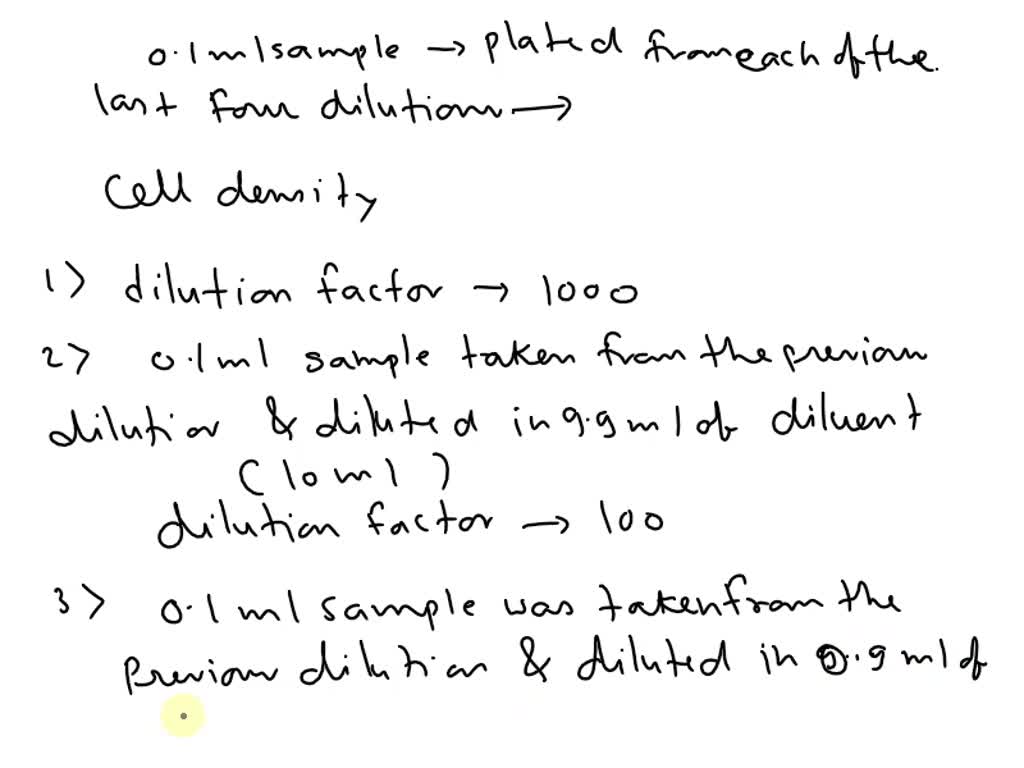 0.1 ml sample → plated from each of the.
last four dilution →
Cell density
1> dilution factor → 1000
2> 0.1 ml sample taken from the previous
dilution & diluted in 9.9 ml of diluent
(10 ml)
dilution factor → 100
3> 0.1 ml sample was taken from the
previous dilution & diluted in 0.9 ml of